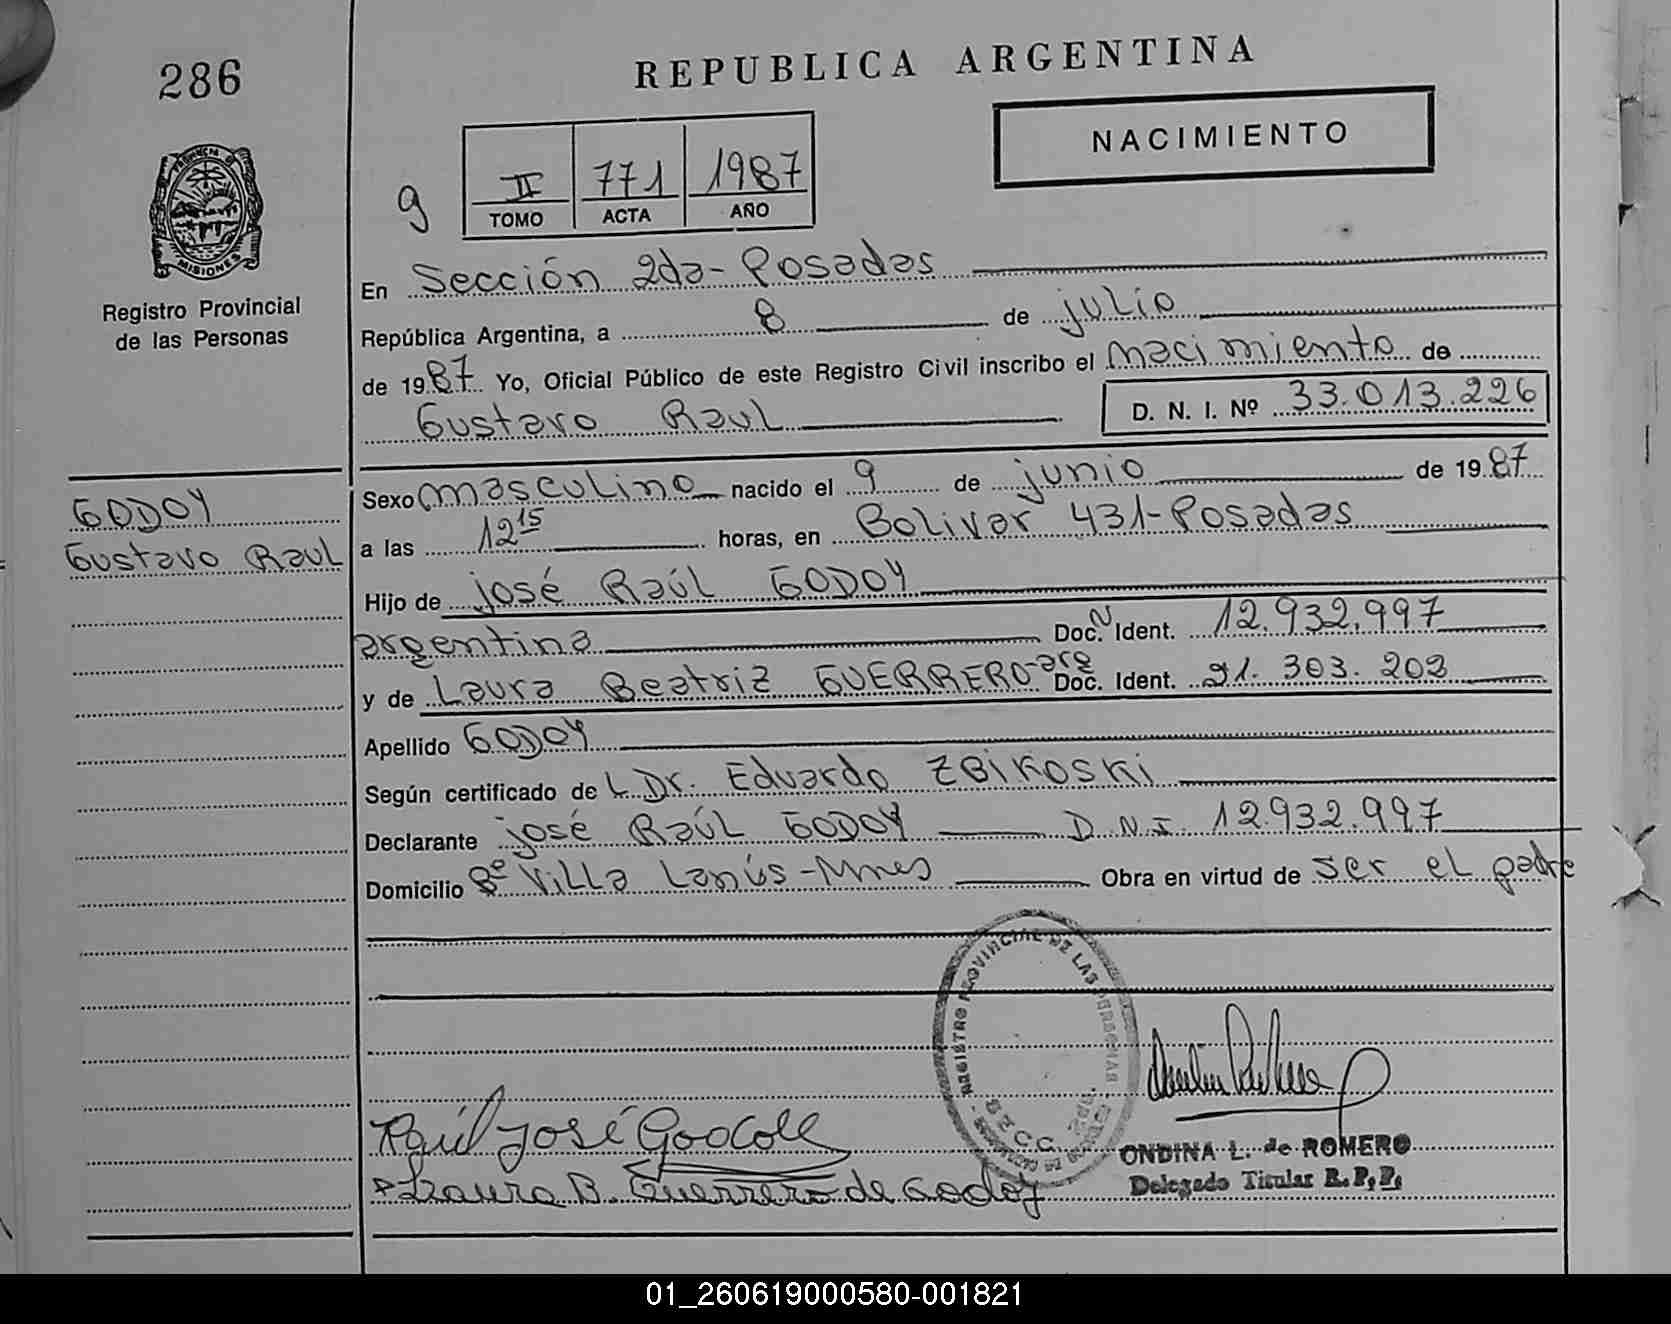 286
REPUBLICA ARGENTINA
NACIMIENTO
g
II 771 1987
TOMO ACTA AÑO
PROVINCIA D
MISIONES
Registro Provincial
de las Personas
En Sección 2da- Posadas
República Argentina, a 8 de julio
de 1987 Yo, Oficial Público de este Registro Civil inscribo el nacimiento de
Gustavo Raul D. N. I. Nº 33.013.226
GODOY
Gustavo Raul
Sexo masculino nacido el 9 de junio de 1987
a las 12 15 horas, en Bolivar 431-Posadas
Hijo de José Raúl GODOY
argentina Doc. N Ident. 12.932.997
y de Laura Beatriz GUERRERO-arg Doc. Ident. 91.303.202
Apellido GODOY
Según certificado de L Dr. Eduardo ZBIKOSKI
Declarante José Raúl GODOY D.N.I. 12.932.997
Domicilio Bº Villa Lanús-Mnes Obra en virtud de ser el padre
REGISTRO PROVINCIAL DE LAS PERSONAS
SECC.
Raúl José
Laura B. Guerrero de Godoy
ONDINA L. de ROMERO
Delegado Titular R.P.P.
01_260619000580-001821